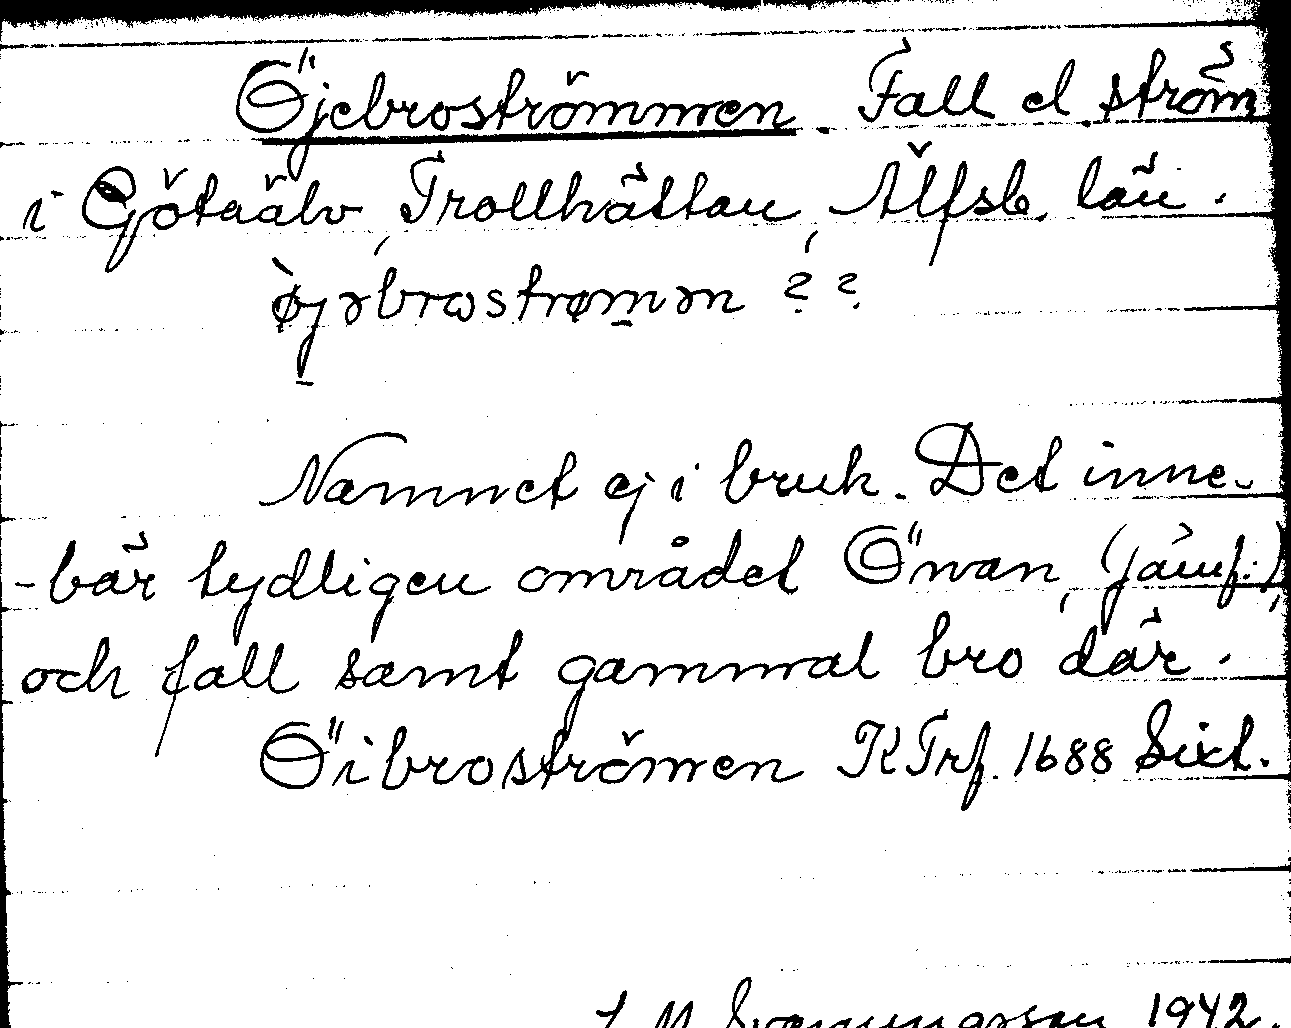 Öjebroströmmen. Fall el. ström
i Götaälv, Trollhättan, Älfsb. län.
ø̀jəbrωstrømən ? ?
Namnet ej i bruk. Det inne-
-bär tydligen området Önan, (jämf.:),
och fall samt gammal bro där.
Öibroströmen KTrf. 1688 Sixt.
Svenningsson 1942.